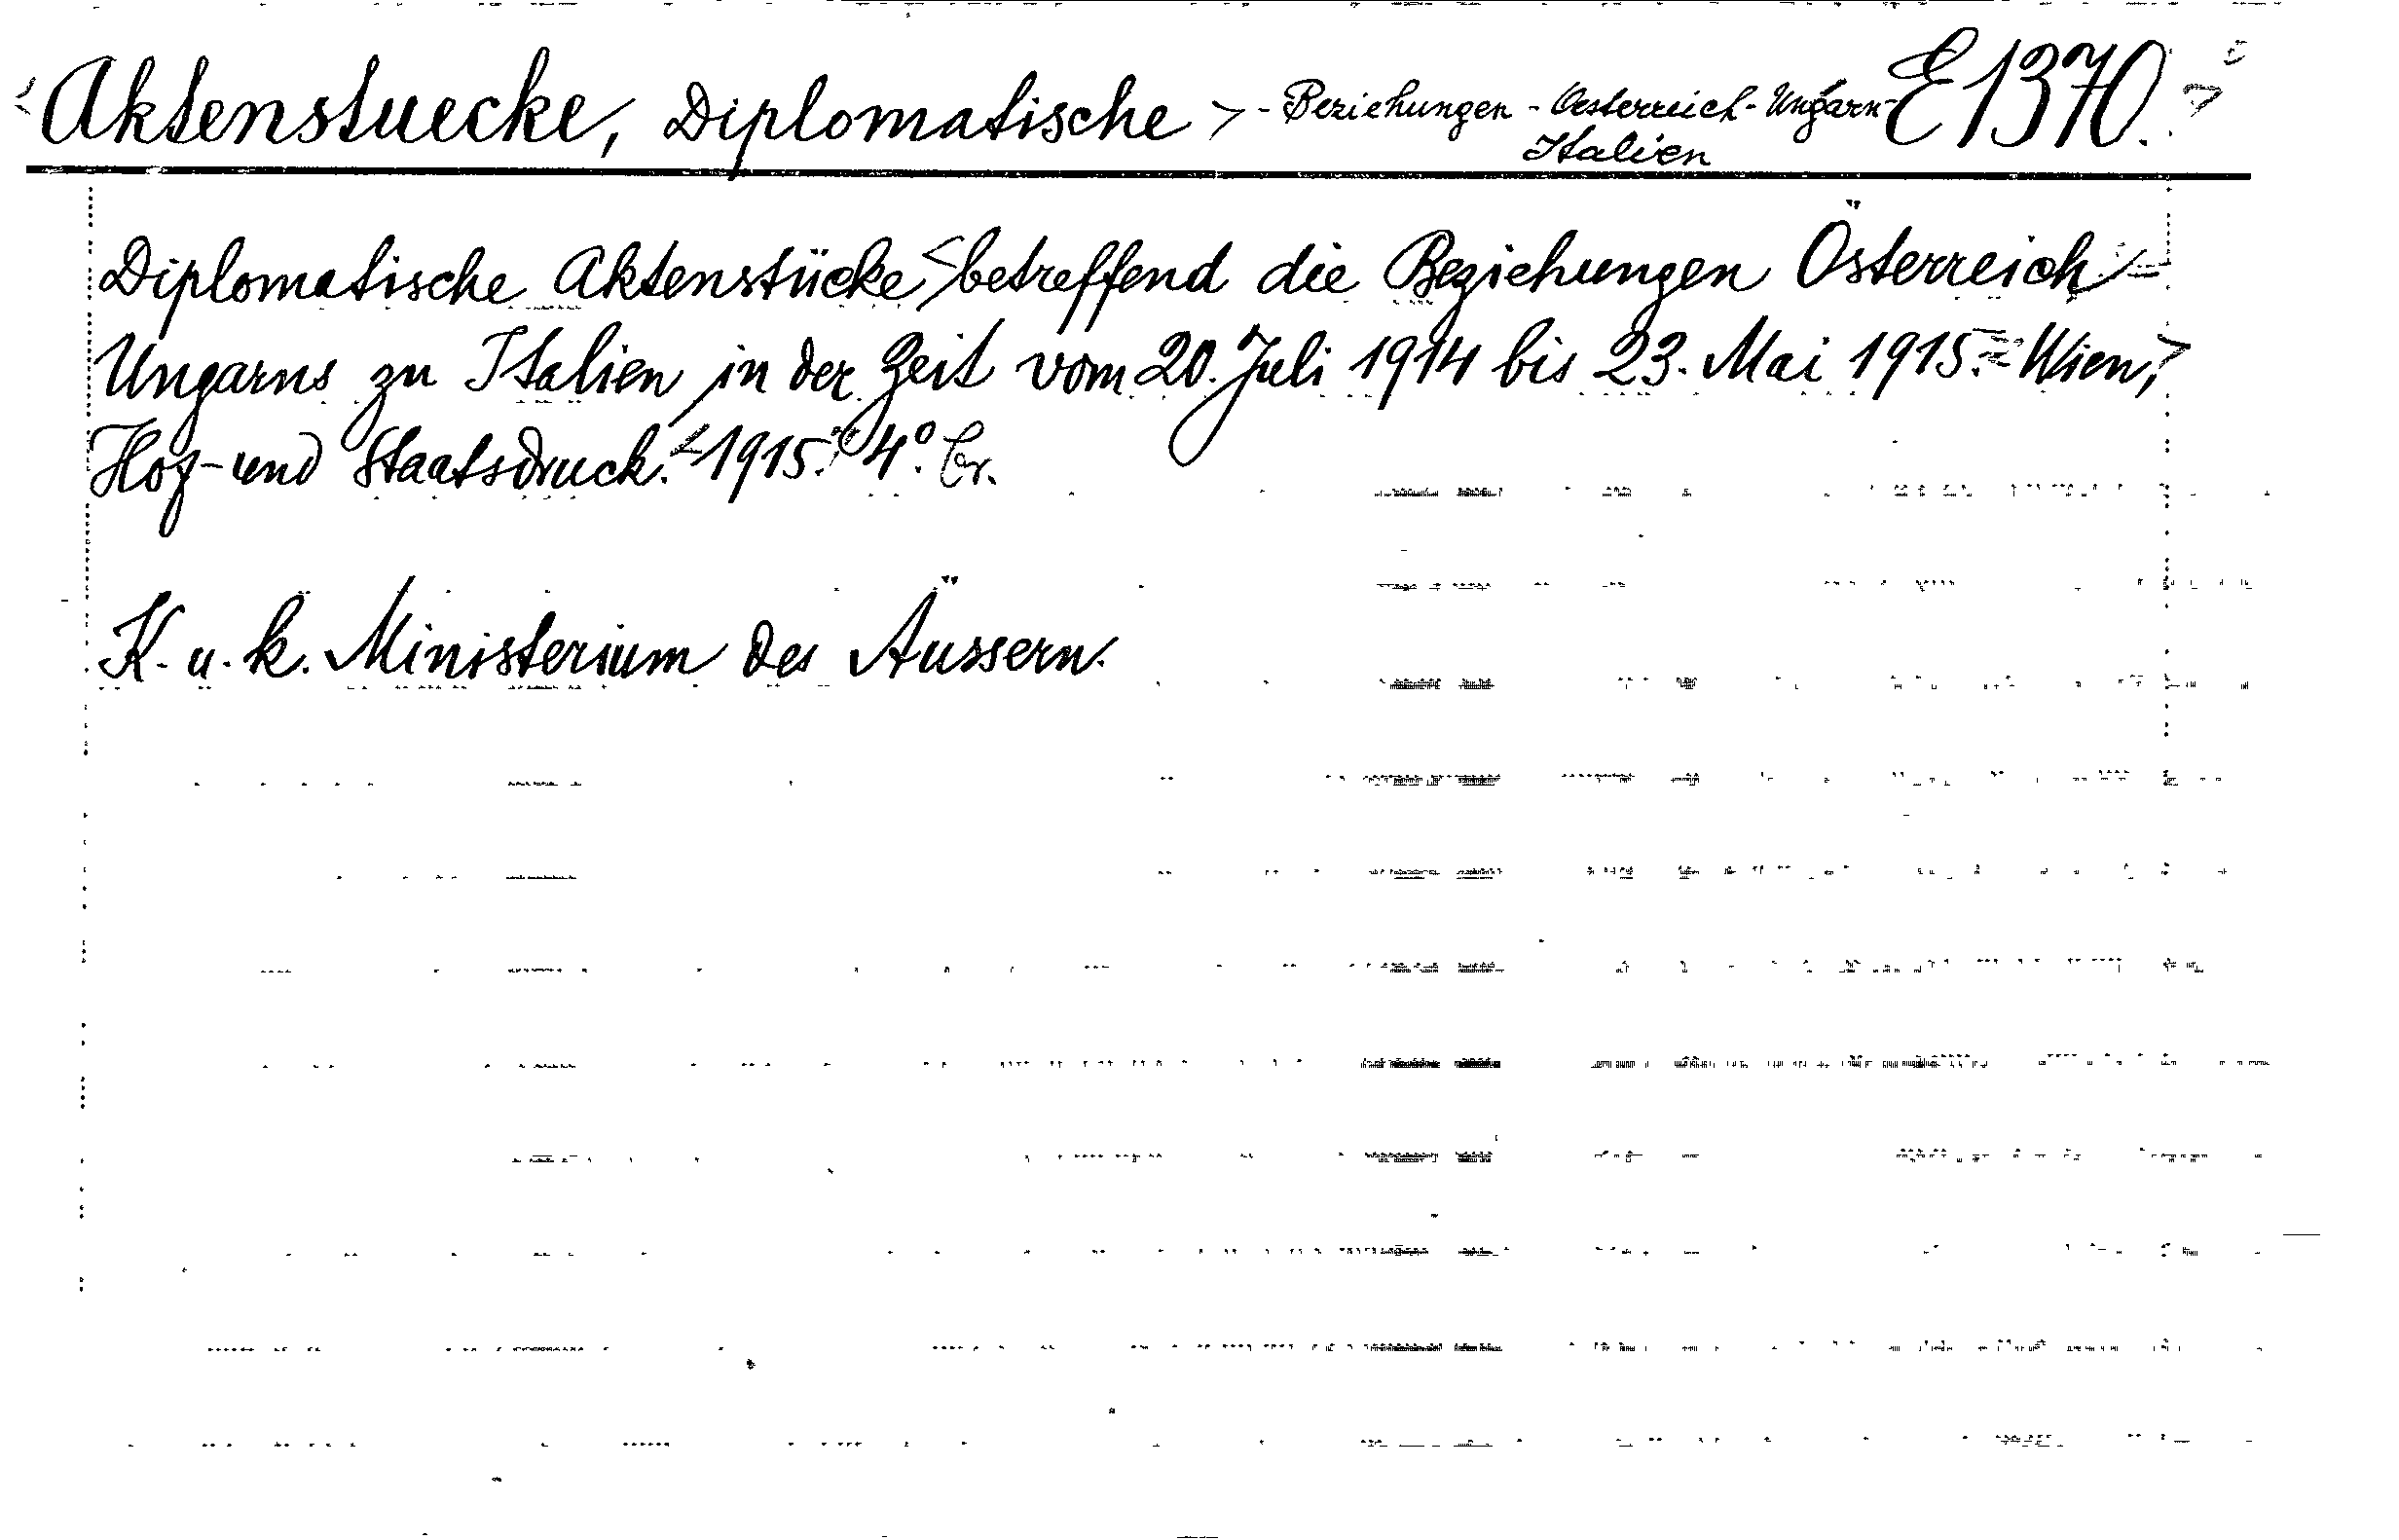 Aktenstuecke, Diplomatische > - Beziehungen - Oesterreich - Ungarn - E1370.
Italien
Diplomatische Aktenstücke < betreffend die Beziehungen Österreich-
Ungarns zu Italien in der Zeit vom 20. Juli 1914 bis 23. Mai 1915. = Wien,
Hof- und Staatsdruck. 1915. 4° Br.
K. u. k. Ministerium des Äussern.